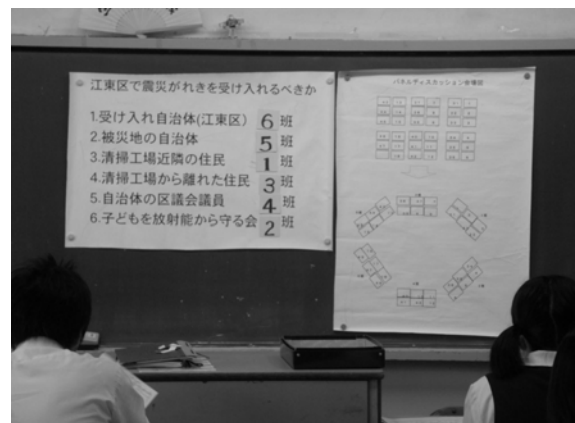 江東区で震災がれきを受け入れるべきか
1.受け入れ自治体(江東区) 6 班
2.被災地の自治体 5 班
3.清掃工場近隣の住民 1 班
4.清掃工場から離れた住民 3 班
5.自治体の区議会議員 4 班
6.子どもを放射能から守る会 2 班
パネルディスカッション会場図